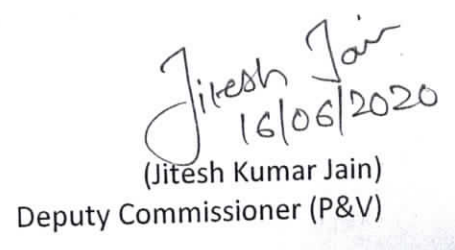 Jitesh Jain
16/06/2020
(Jitesh Kumar Jain)
Deputy Commissioner (P&V)